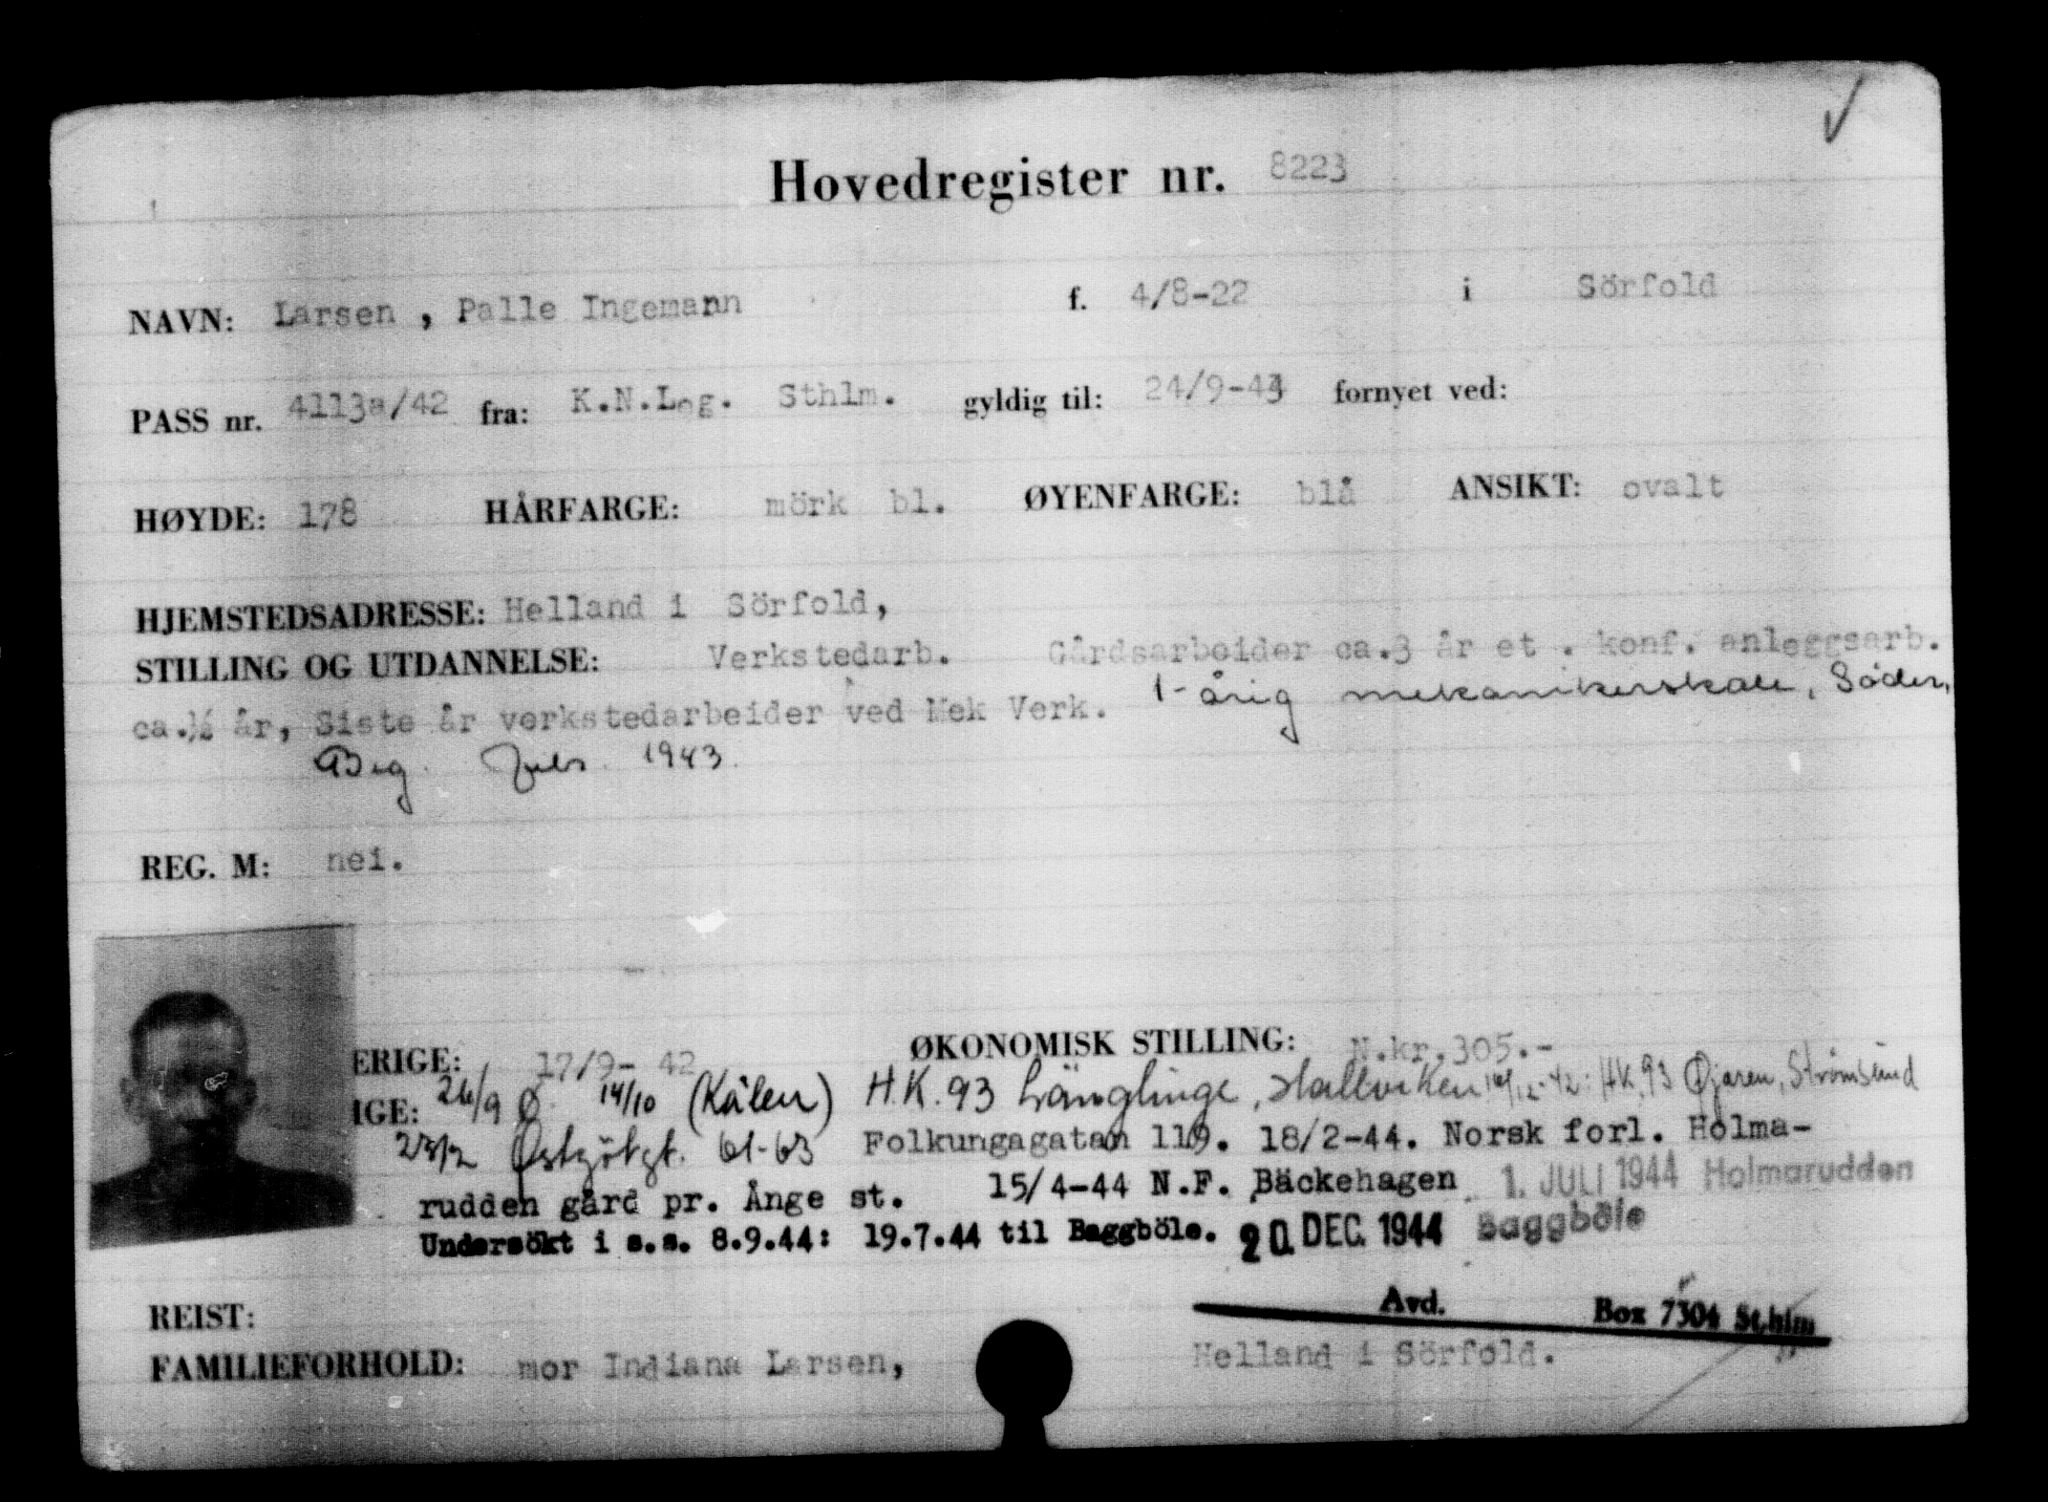 Hovedregister nr. 8223
NAVN: Larsen, Palle Ingemann f. 4/8-22 i Sörfold
PASS nr. 4113a/42 fra: K.N.Leg. Sthlm. gyldig til: 24/9-43 fornyet ved:
HØYDE: 178 HÅRFARGE: mörk bl. ØYENFARGE: blå ANSIKT: ovalt
HJEMSTEDSADRESSE: Helland i Sörfold,
STILLING OG UTDANNELSE: Verkstedarb. Gårdsarbeider ca.3 år et . konf. anleggsarb.
ca.½ år, Siste år verkstedarbeider ved Mek Verk. 1-årig mekanikerskole, Söder,
Beg. 1943.
REG. M: nei.
ERIGE: 17/9- 42 ØKONOMISK STILLING: N.kr.305.-
IGE: 26/9 Ø. 14/10 (Kålen) H.K. 93 Länglinge, Hallviken 42: HK. 93 Öjaren, Strømsund
23/2 Østgötgt. 61-63 Folkungagatan 119. 18/2-44. Norsk forl. Holma-
rudden gård pr. Ånge st. 15/4-44 N.F. Bäckehagen 1. JULI 1944 Holmarudden
Undersökt i s.s. 8.9.44: 19.7.44 til Baggböle. 20. DEC. 1944 Baggböle
REIST: Avd. Box 7304 Sthlm
FAMILIEFORHOLD: mor Indiana Larsen, Helland i Sörfold.